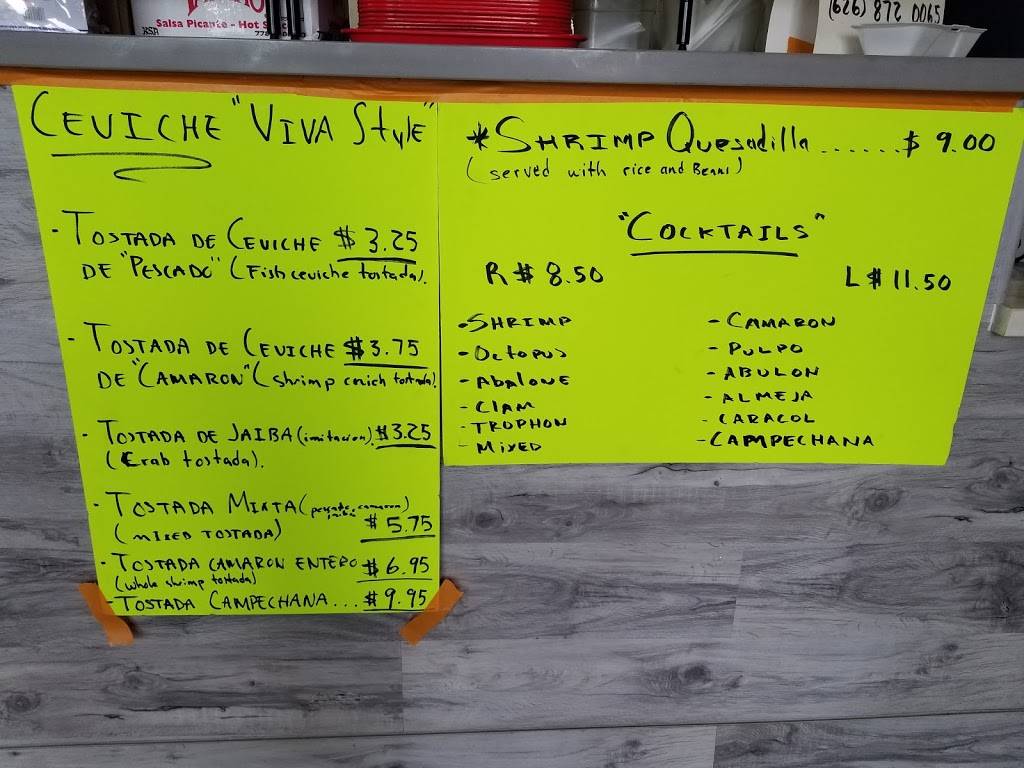 Salsa Picante - Hot S
(626) 872 0065
CEVICHE "VIVA StyLE"
- TOSTADA DE CEVICHE $ 3.25
DE "PESCADO" (Fish ceviche tostada).
- TOSTADA DE CEVICHE $3.75
DE "CAMARON" (shrimp cevich tostada).
- TOSTADA DE JAIBA (imitacion). $3.25
(Crab tostada).
- TOSTADA MIXTA (pescado, camaron)
(MIXED TOSTADA) $ 5.75
- TOSTADA CAMARON ENTERO $ 6.95
(whole shrimp tostada)
- TOSTADA CAMPECHANA... $ 9.95
*SHRIMP Quesadilla ....... $ 9.00
(served with rice and BEANS)
"COCKTAILS"
R $ 8.50 L $ 11.50
- SHRIMP - CAMARON
- OCTOPUS - PULPO
- ABALONE - ABULON
- CLAM - ALMEJA
- TROPHON - CARACOL
- MIXED - CAMPECHANA